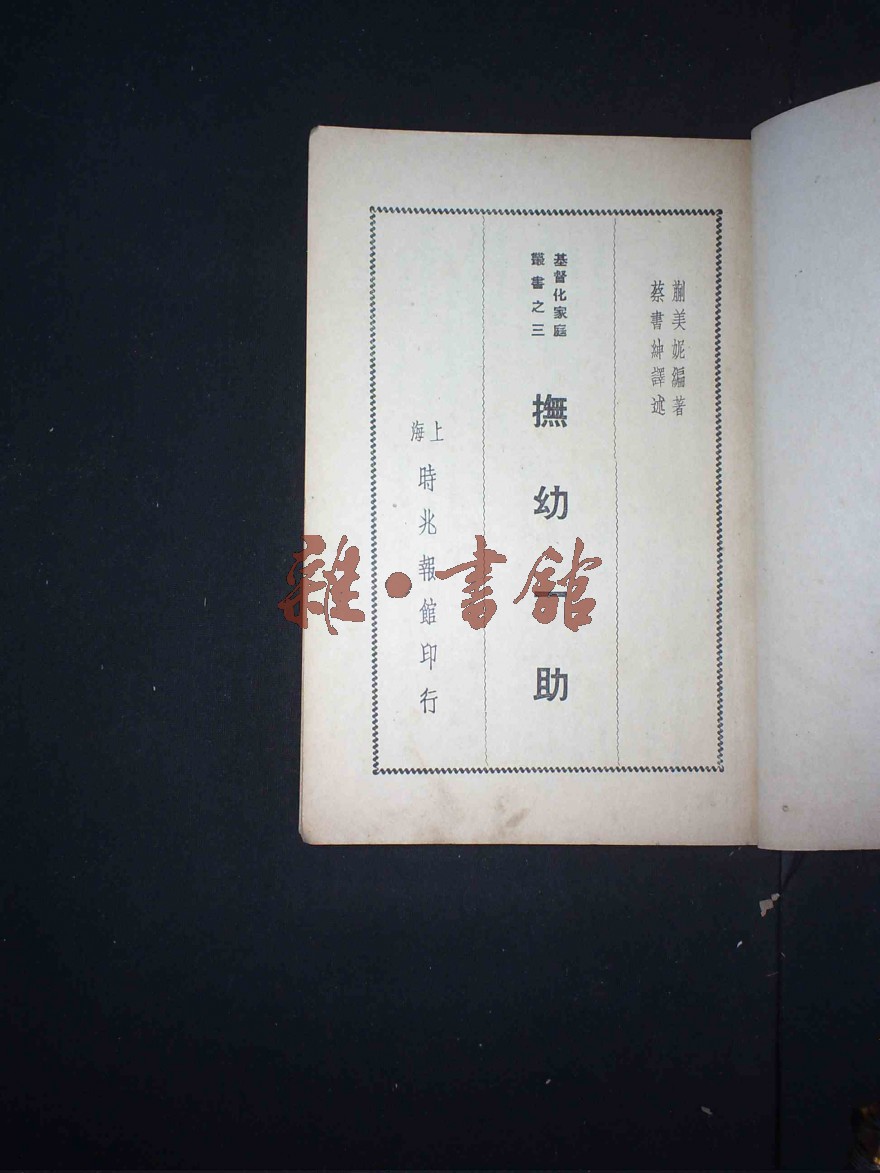 蒯美妮編著
蔡書紳譯述
基督化家庭
叢書之三
撫幼一助
上海
時兆報館印行
雜·書館